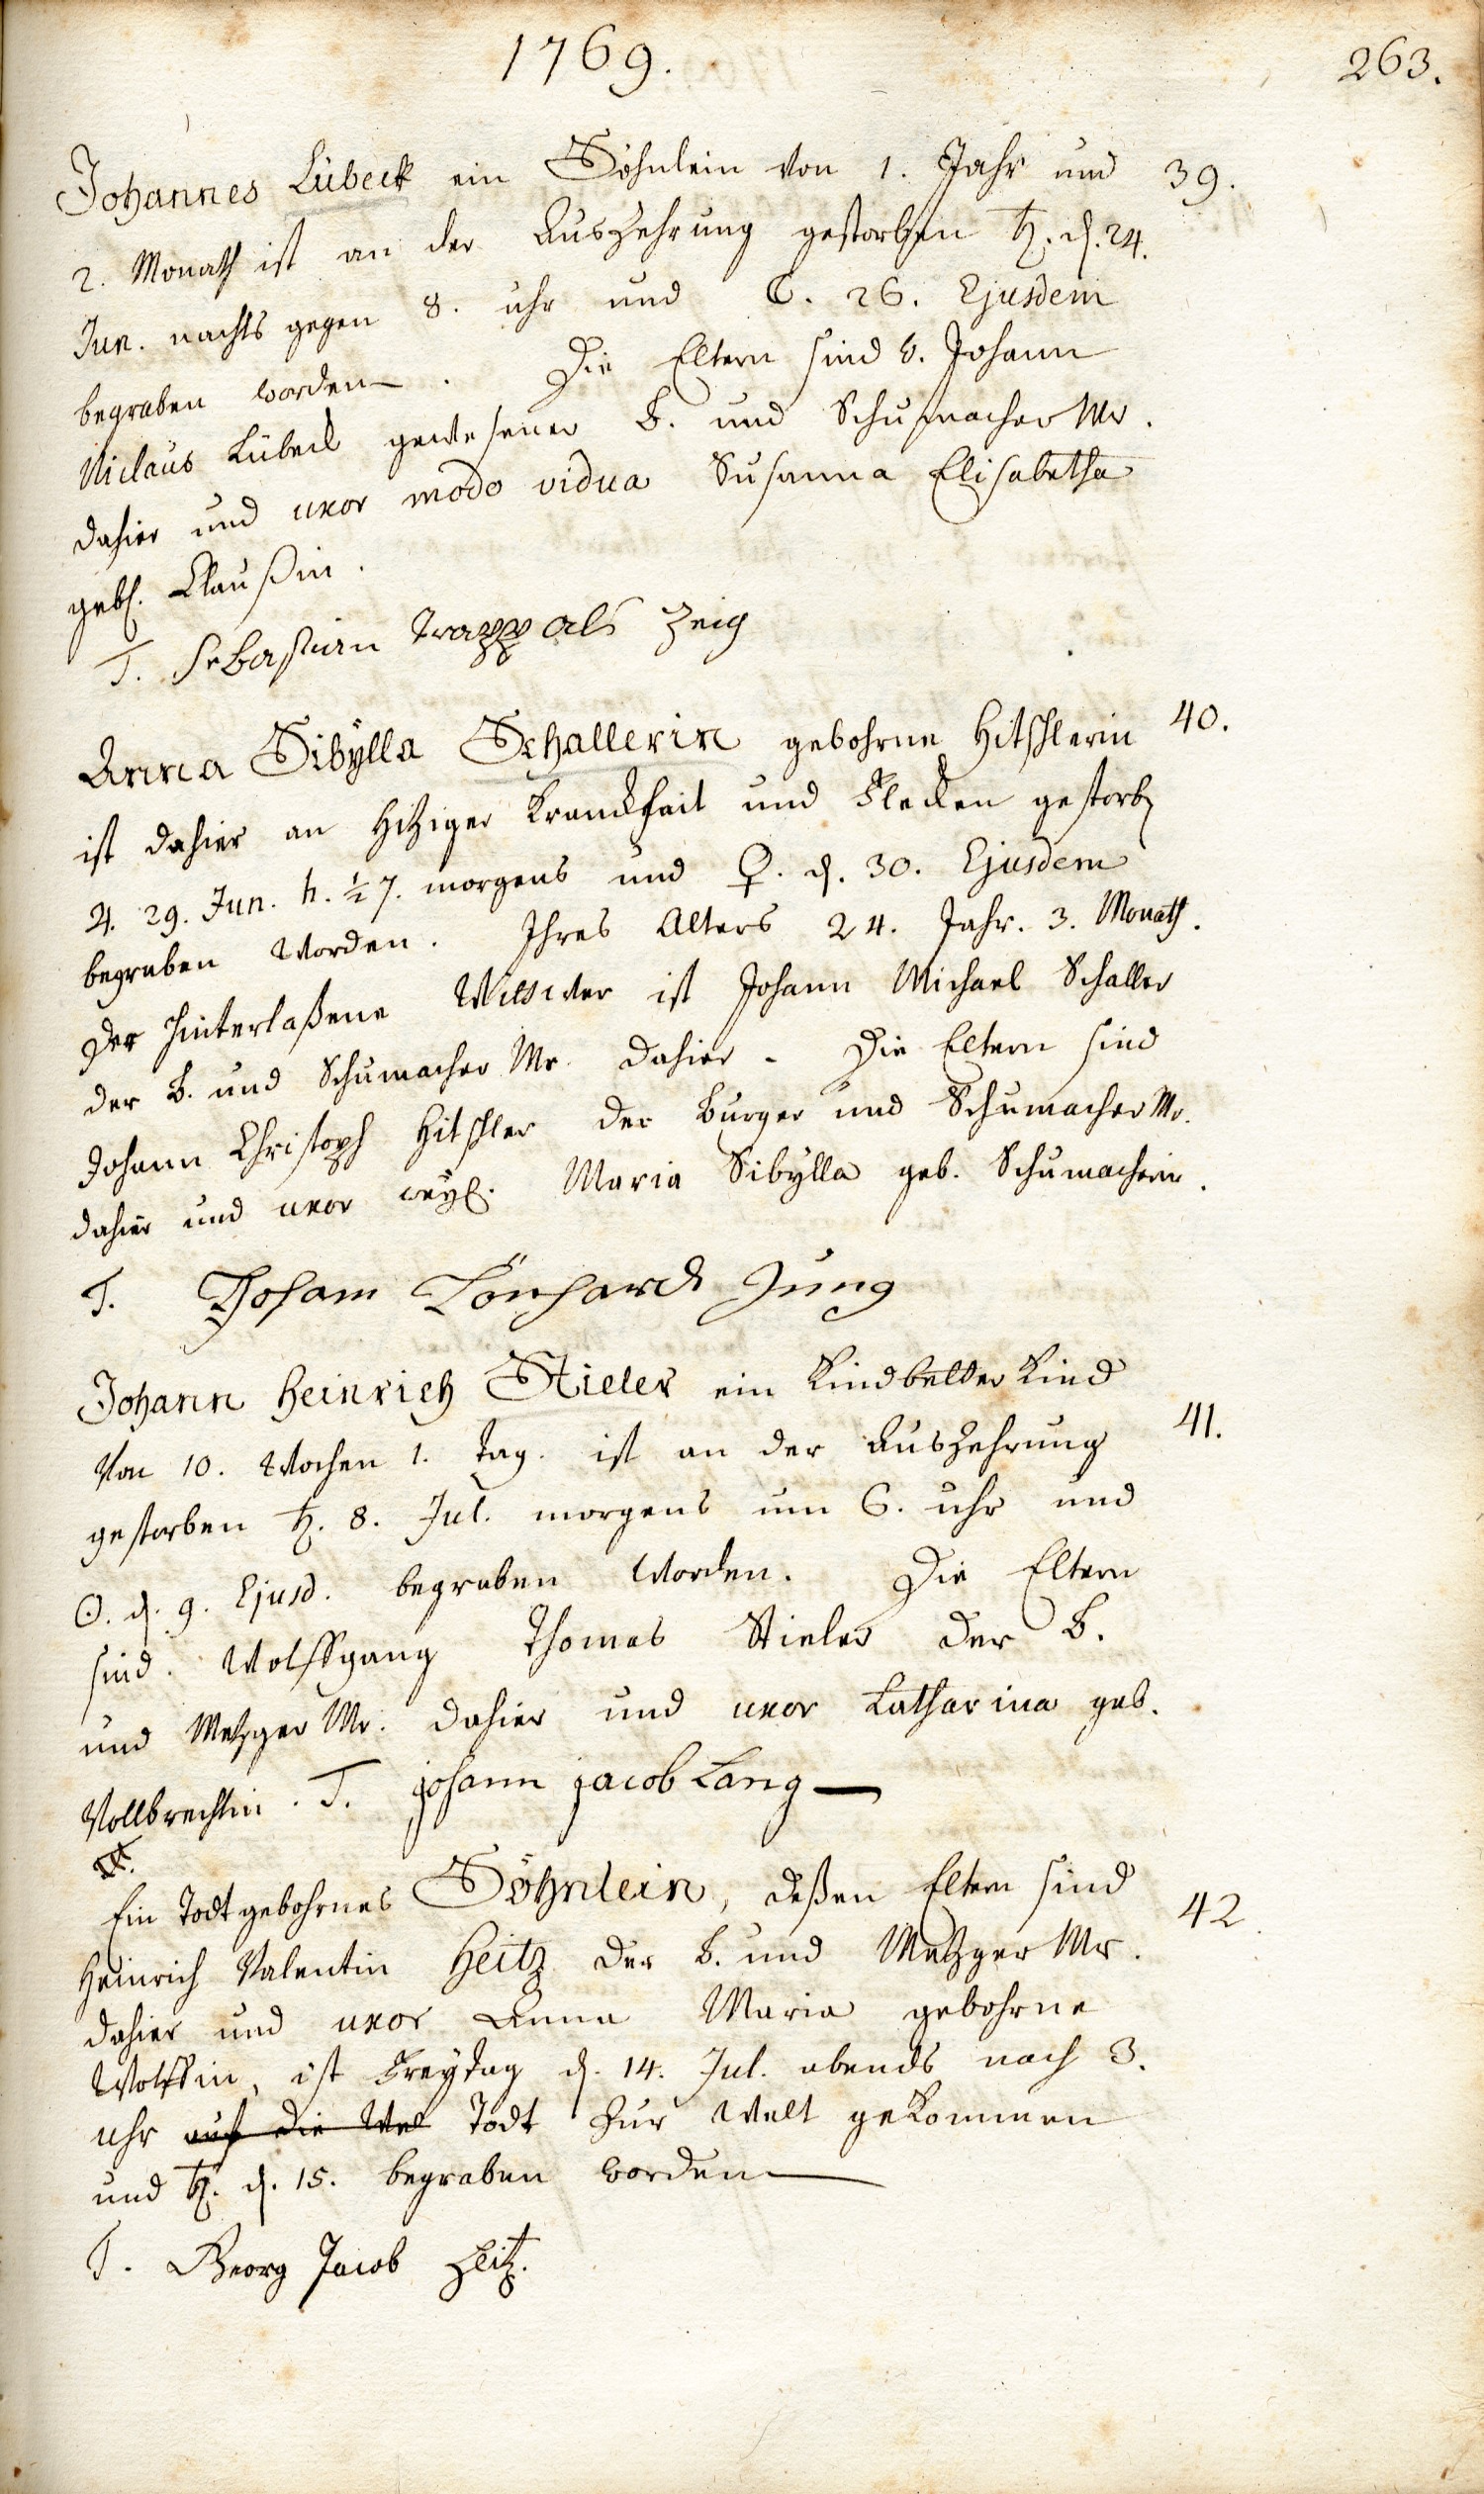 1769.
263.
Johannes Lübeck ein Söhnlein von 1. Jahr und 39.
2. Monath ist an der Auszehrung gestorben ♄. d. 24.
Jun. nachts gegen 8. uhr und 26. Ejusdem
begraben worden. Die Eltern sind Johann
Niclaus Lübeck gewesener B. und Schumacher Mr.
dahier und uxor modo vidua Susanna Elisabetha
geb. Claußin.
T. Sebastian Trapp als Zeig
Anna Sibÿlla Schallerin gebohrne Hitschlerin 40.
ist dahier an hitziger Kranckheit und Flecken gestorben
♃. 29. Jun. h. ½ 7. morgens und ♀. d. 30. Ejusdem
begraben worden. Ihres Alters 24. Jahr. 3. Monath.
Der hinterlaßene Wittwer ist Johann Michael Schaller
der B. und Schumacher Mr. dahier. Die Eltern sind
Johann Christoph Hitschler der Burger und Schumacher Mr.
dahier und uxor weyl. Maria Sibÿlla geb. Schumacherin.
T. Johann Lönhardt Jung
Johann Heinrich Stieler ein Kindbetter Kind 41.
von 10. Wochen 1. Tag. ist an der Auszehrung
gestorben ♄. 8. Jul. morgens um 6. uhr und
☉. d. 9. Ejusd. begraben worden. Die Eltern
sind. Wolffgang Thomas Stieler der B.
und Metzger Mr. dahier und uxor Catharina geb.
Vollbrechtin. T. johann jacob Lang
Ein Todtgebohrnes Söhnlein, deßen Eltern sind 42
Heinrich Valentin Heitz der B. und Metzger Mr.
dahier und uxor Anna Maria gebohrne
Wolffin, ist Freÿtag d. 14. Jul. abends nach 3.
uhr auf die Wel Todt zur Welt gekommen
und ♄. d. 15. begraben worden
T. Georg Jacob Heitz.